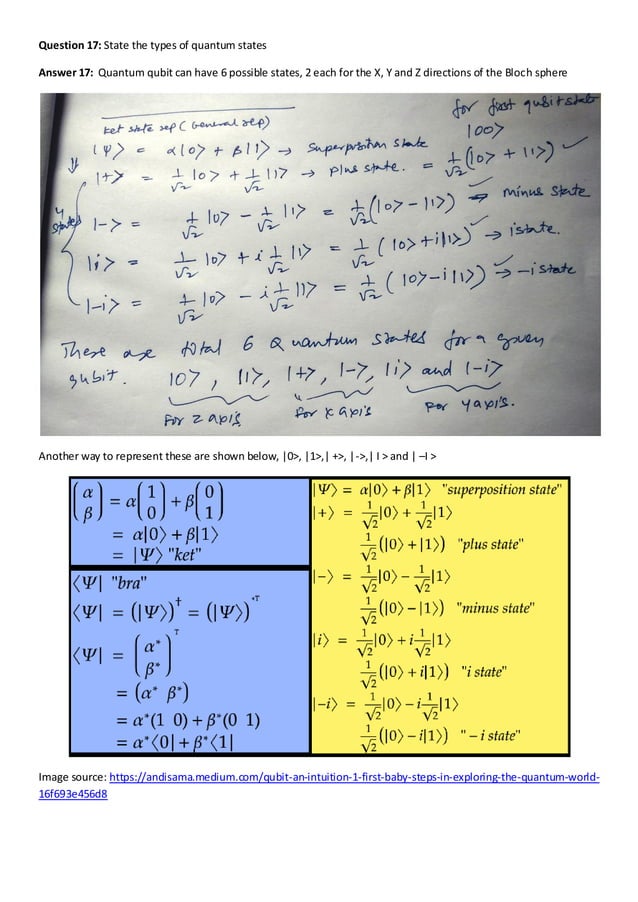 Question 17: State the types of quantum states
Answer 17: Quantum qubit can have 6 possible states, 2 each for the X, Y and Z directions of the Bloch sphere
for first qubit state
ket state rep (General rep)
|00>
|Ψ> = α|0> + β|1> → Superposition state
|+> = 1/√2 |0> + 1/√2 |1> → plus state. = 1/√2 (|0> + |1>) ✓
4 states
|-> = 1/√2 |0> - 1/√2 |1> = 1/√2 (|0> - |1>) → minus state
|i> = 1/√2 |0> + i 1/√2 |1> = 1/√2 (|0> + i|1>) → i state.
|-i> = 1/√2 |0> - i 1/√2 |1> = 1/√2 (|0> - i|1>) → -i state
There are total 6 Quantum states for a given
qubit. |0>, |1>, |+>, |->, |i> and |-i>
For z axis For x axis For y axis.
Another way to represent these are shown below, |0>, |1>,| +>, |->,| I > and | –I >
(α β) = α(1 0) + β(0 1)
= α|0⟩ + β|1⟩
= |Ψ⟩ "ket"
⟨Ψ| "bra"
⟨Ψ| = (|Ψ⟩)† = (|Ψ⟩)*T
⟨Ψ| = (α* β*)T
= (α* β*)
= α*(1 0) + β*(0 1)
= α*⟨0| + β*⟨1|
|Ψ⟩ = α|0⟩ + β|1⟩ "superposition state"
|+⟩ = 1/√2|0⟩ + 1/√2|1⟩
1/√2(|0⟩ + |1⟩) "plus state"
|−⟩ = 1/√2|0⟩ − 1/√2|1⟩
1/√2(|0⟩ − |1⟩) "minus state"
|i⟩ = 1/√2|0⟩ + i1/√2|1⟩
1/√2(|0⟩ + i|1⟩) "i state"
|−i⟩ = 1/√2|0⟩ − i1/√2|1⟩
1/√2(|0⟩ − i|1⟩) "− i state"
Image source: https://andisama.medium.com/qubit-an-intuition-1-first-baby-steps-in-exploring-the-quantum-world-
16f693e456d8